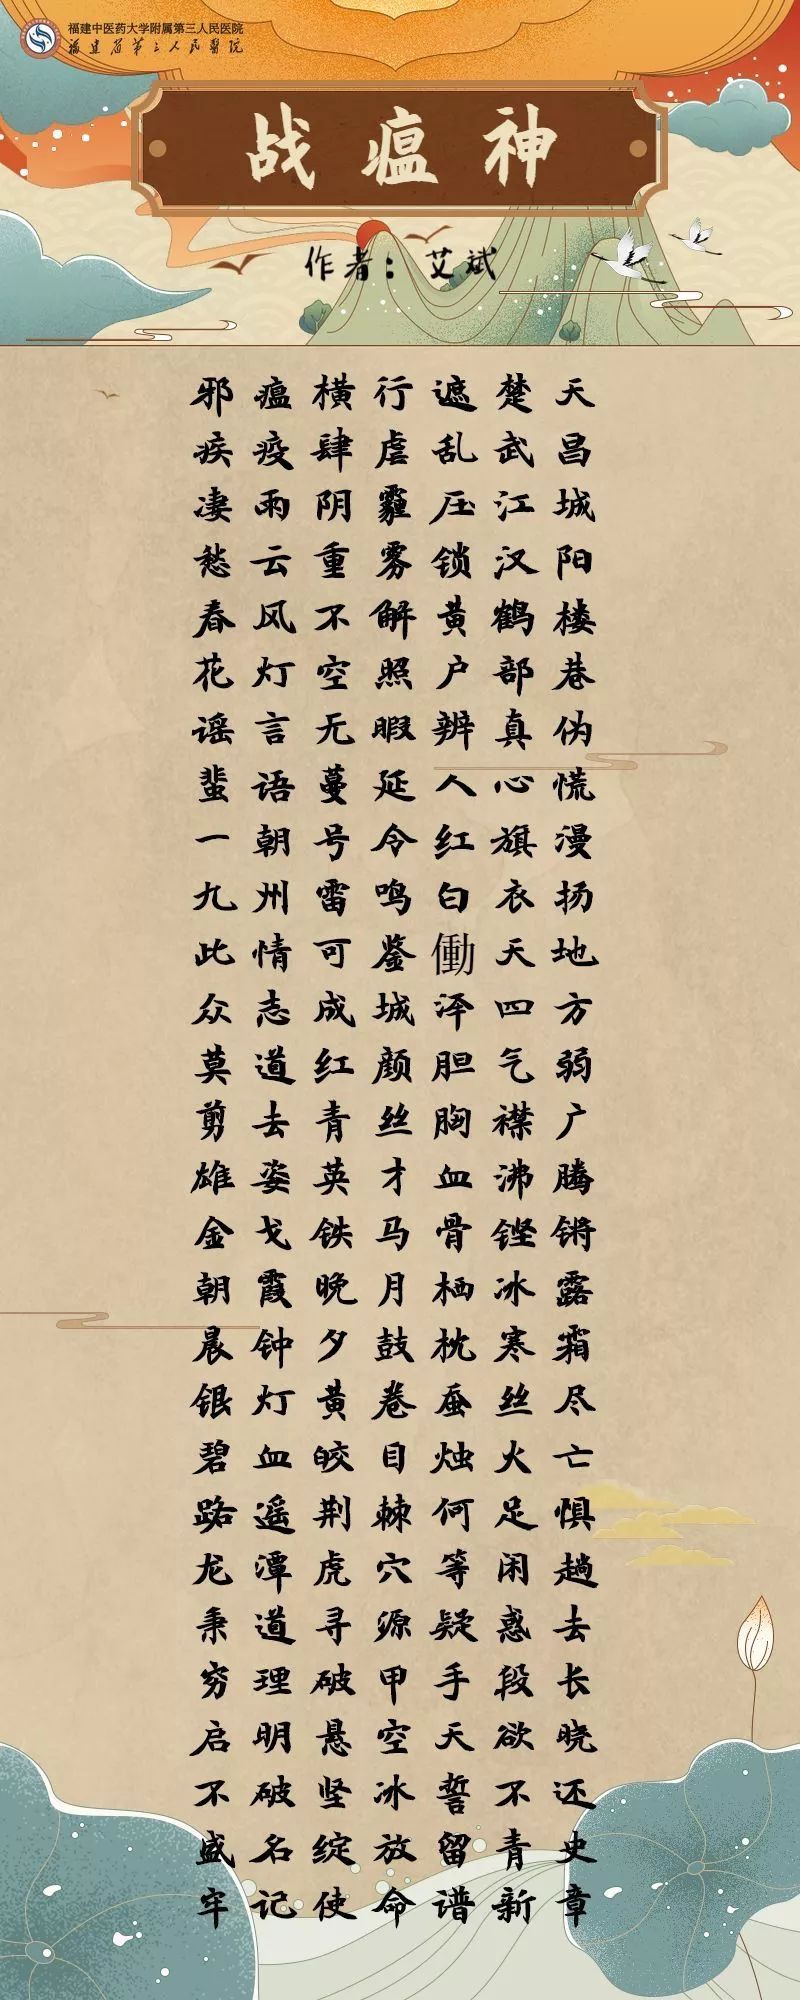 福建中医药大学附属第三人民医院
福建省第三人民医院
战瘟神
作者：艾斌
邪瘟横行遮楚天
疾疫肆虐乱武昌
凄雨阴霾压江城
愁云重雾锁汉阳
春风不解黄鹤楼
花灯空照户部巷
谣言无暇辨真伪
蜚语蔓延人心慌
一朝号令红旗漫
九州雷鸣白衣扬
此情可鉴働天地
众志成城泽四方
莫道红颜胆气弱
剪去青丝胸襟广
雄姿英才血沸腾
金戈铁马骨铿锵
朝霞晚月栖冰露
晨钟夕鼓枕寒霜
银灯黄卷蚕丝尽
碧血皎目烛火亡
路遥荆棘何足惧
龙潭虎穴等闲趟
秉道寻源疑惑去
穷理破甲手段长
启明悬空天欲晓
不破坚冰誓不还
盛名绽放留青史
牢记使命谱新章